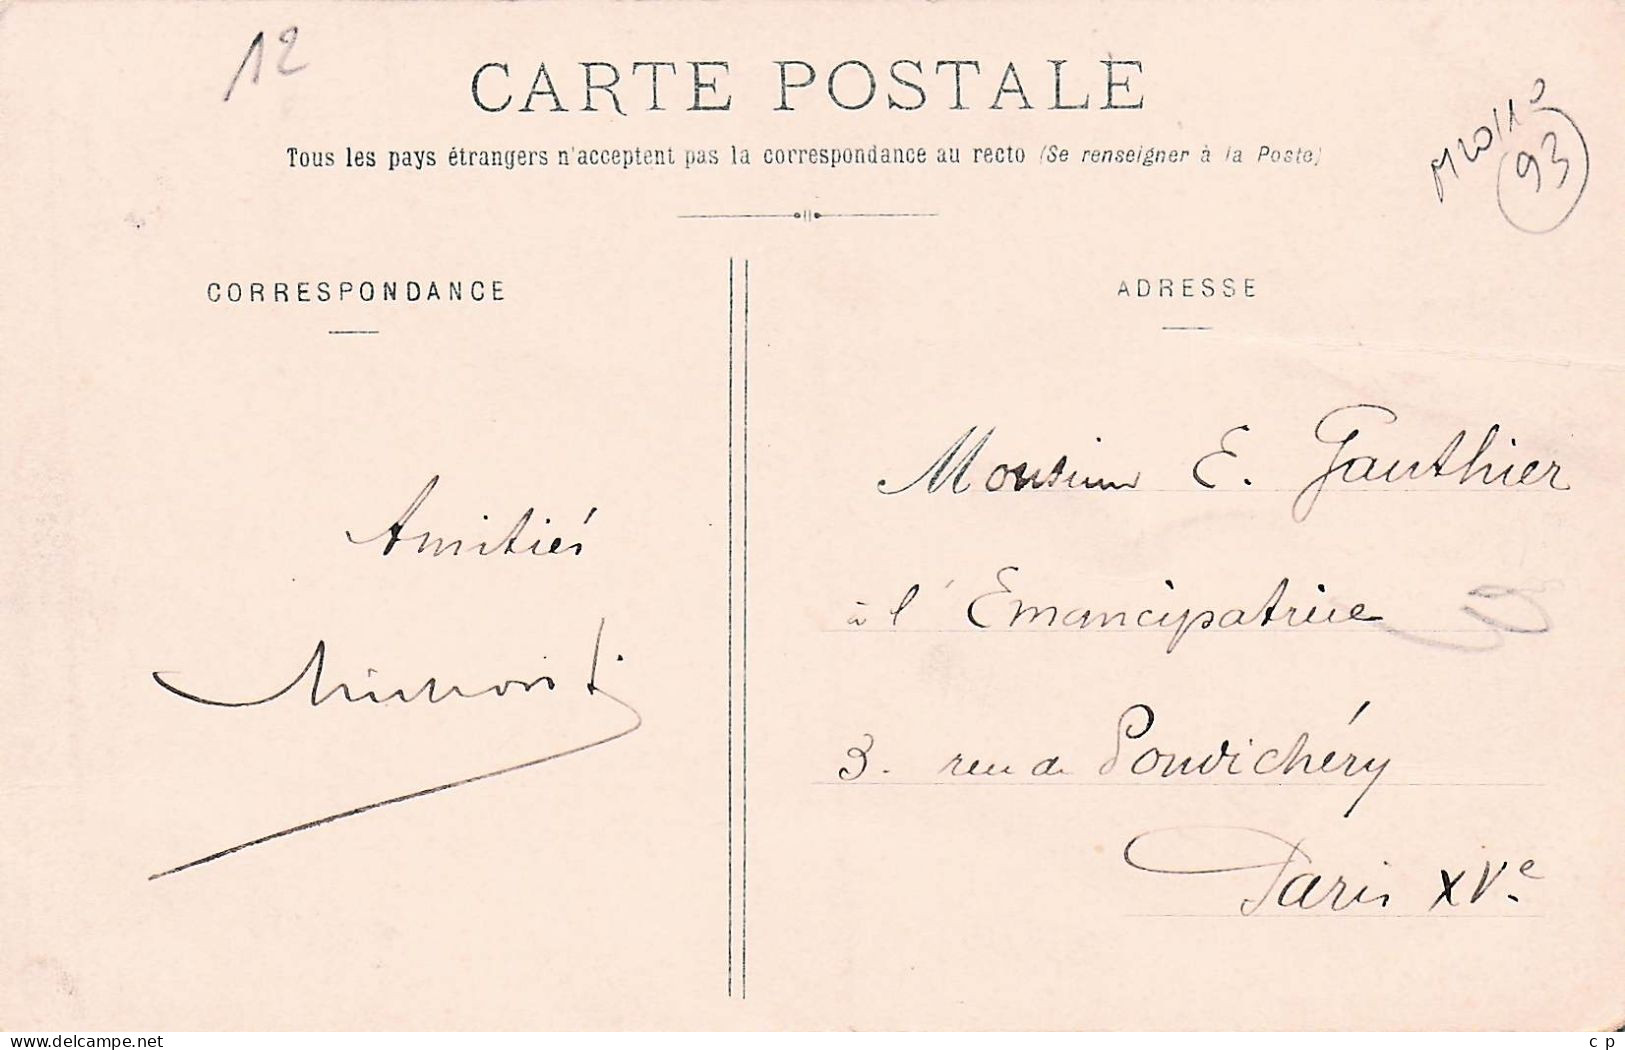 12
CARTE POSTALE
Tous les pays étrangers n'acceptent pas la correspondance au recto (Se renseigner à la Poste)
93
CORRESPONDANCE
ADRESSE
Monsieur E. Gauthier
à l'Emancipatrice
3. rue de Pondichéry
Paris XVe
Amitiés
delcampe.net
c p